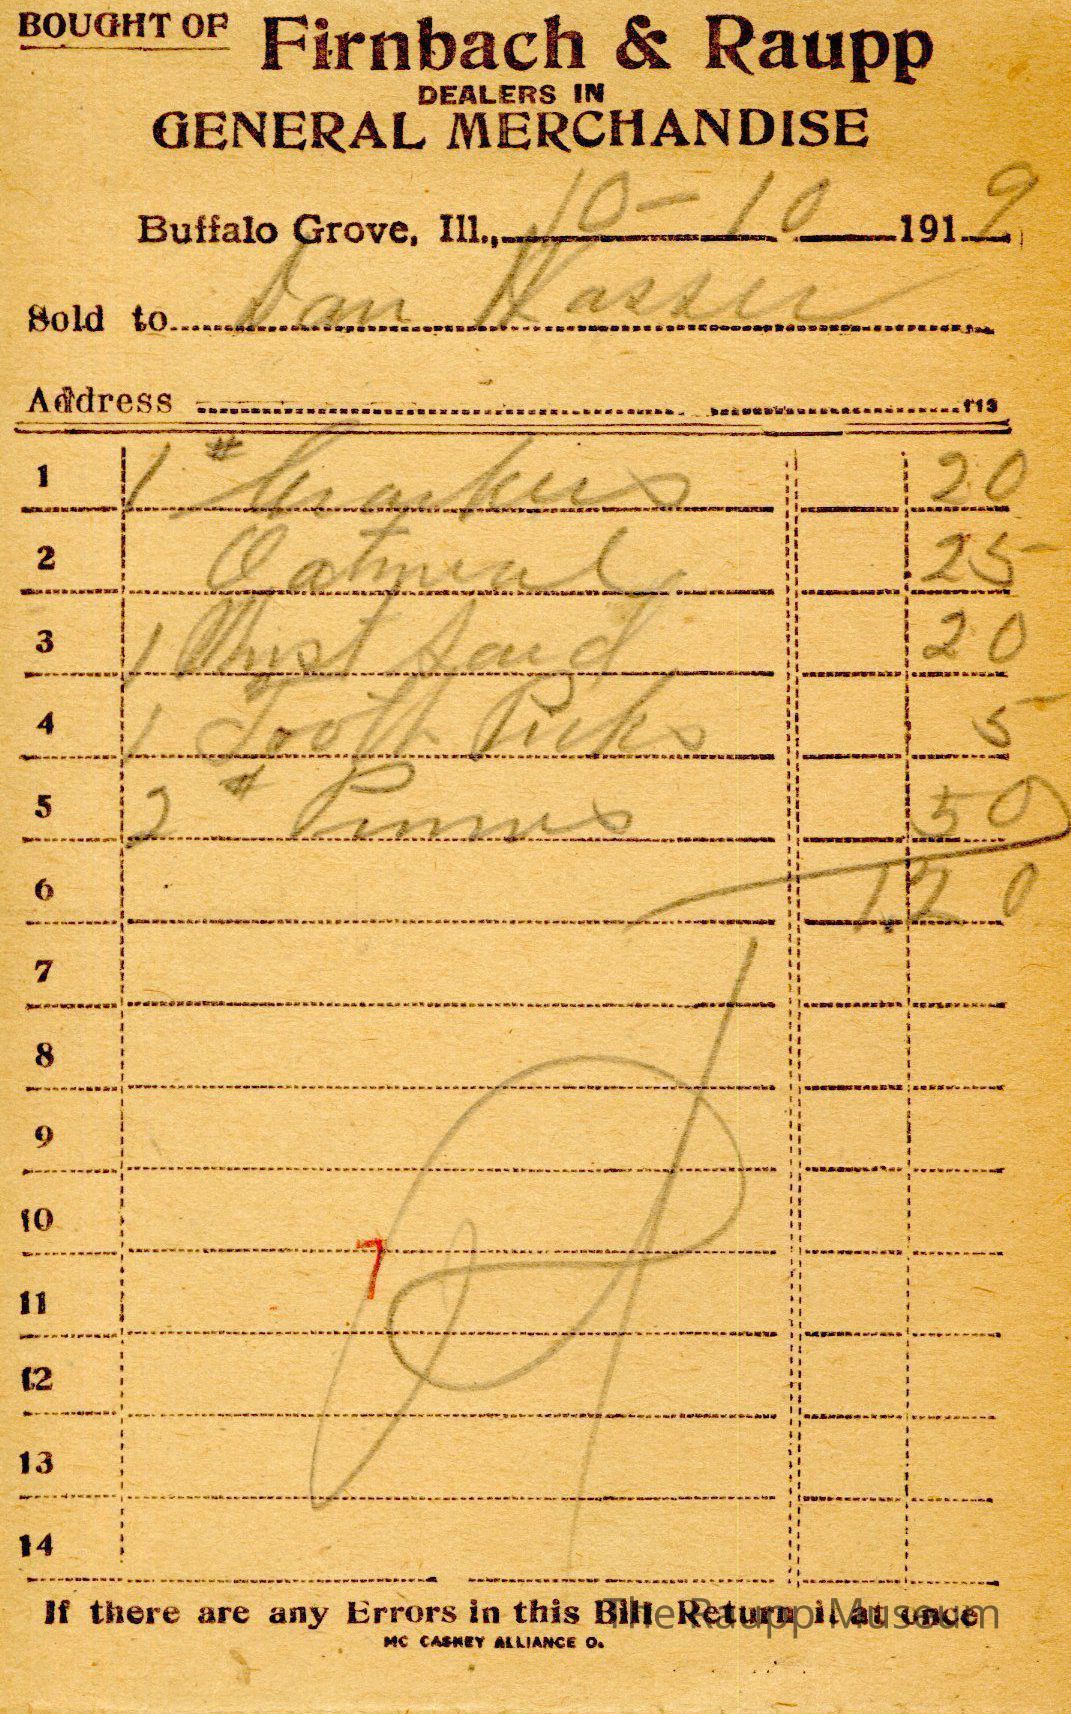 BOUGHT OF Firnbach & Raupp
DEALERS IN
GENERAL MERCHANDISE
Buffalo Grove, Ill., 10-10 1919
Sold to Dan Wasser
Address 113
1 1 # Crackers 20
2 Oatmeal 25
3 1 Mustard 20
4 1 Tooth Picks 5
5 2 # Prunes 50
6 1.20
7
8
9
10
7
11
12
13
14
If there are any Errors in this Bill Return it at once
The Raupp Museum
MC CASKEY ALLIANCE O.